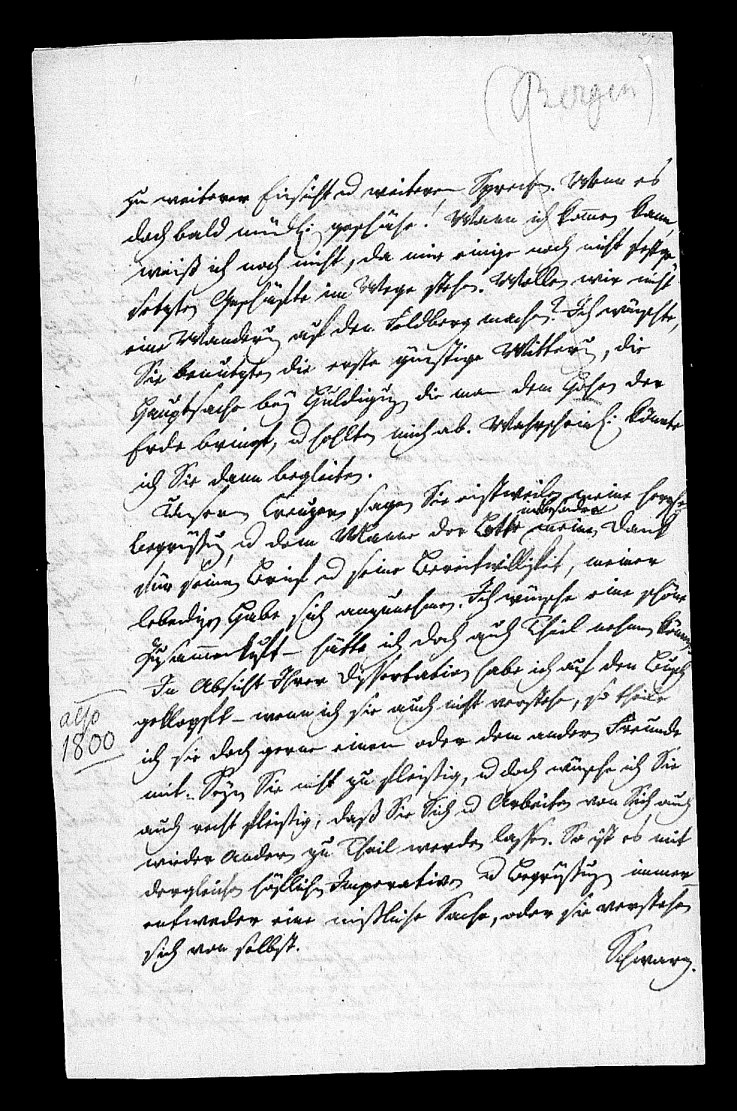 (Bergen)
zu weiterer Einsicht u weiterem Sprechen. Wenn es
doch bald mündl: geschähe! Wann ich kommen kann
weiß ich noch nicht, da mir einige noch nicht festge
setzten Geschäfte im Wege stehen. Wollen wir nicht
eine Wanderung auf den Feldberg machen? Ich wünschte,
Sie benutzten die erste günstige Witterung, die
Hauptsache bey Huldigungen die man dem Hohen der
Erde bringt, u holten mich ab. Wahrscheinl: könnte
ich Sie dann begleiten.
Unserm Creuzer sagen Sie einstweilen meine herzliche
Begrüßung, u dem Manne der Lotte insbesondere meinen Dank
für seinen Brief u seine Bereitwilligkeit, meiner
lebendigen Habe sich anzunehmen. Ich wünsche eine schöne
Zusammenkunft – hätte ich doch auch Theil nehmen können.
In Absicht Ihrer Dissertation habe ich auf den Busch
geklopft – wenn ich sie auch nicht verstehe, so theile
also
1800
ich sie doch gerne einem oder dem andern Freunde
mit. Seyen Sie nicht zu fleißig, u doch wünsche ich Sie
auch recht fleißig, daß Sie Sich u Arbeiten von Sich auch
wieder Andern zu Theil werden lassen. So ist es mit
dergleichen höflichen Imperativen u Begrüßungen immer
entweder eine mißliche Sache, oder sie verstehen
sich von selbst.
Schwarz.